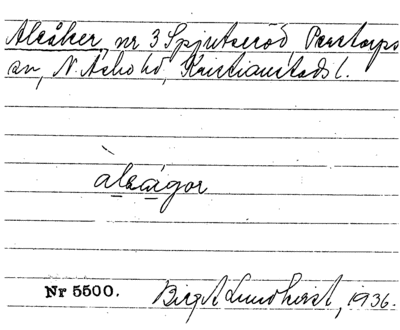 Alsåker, nr 3 Spjutseröd, Perstorps
sn, N. Åsbo hd, Kristianstads l.
alságor
Nr 5500.
Birgit Lundherst, 1936.